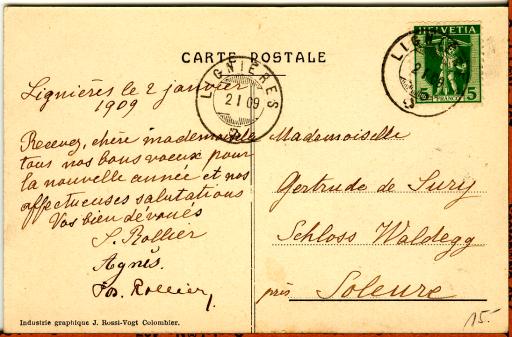 CARTE POSTALE
HELVETIA
5 FRANCO 5
LIGNIÈRES
2 I 09
LIGNIÈRES
2 I 09
Lignières le 2 janvier
1909
Recevez, chère mademoiselle
tous nos bons voeux pour
la nouvelle année et nos
affectueuses salutations
Vos bien dévoués
S. Rollier
Agnès.
Rollier
Mademoiselle
Gertrude de Sury
Schloss Waldegg
près Soleure
15.-
Industrie graphique J. Rossi-Vogt Colombier.